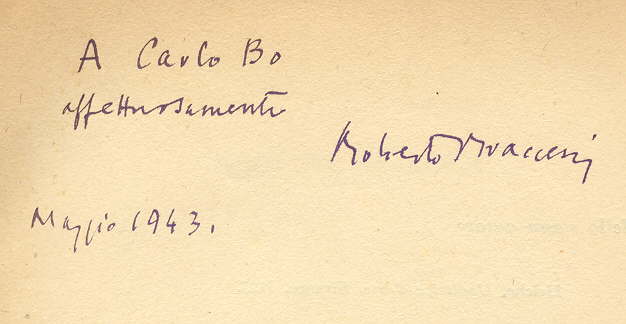 A Carlo Bo
affettuosamente
Roberto
Maggio 1943.